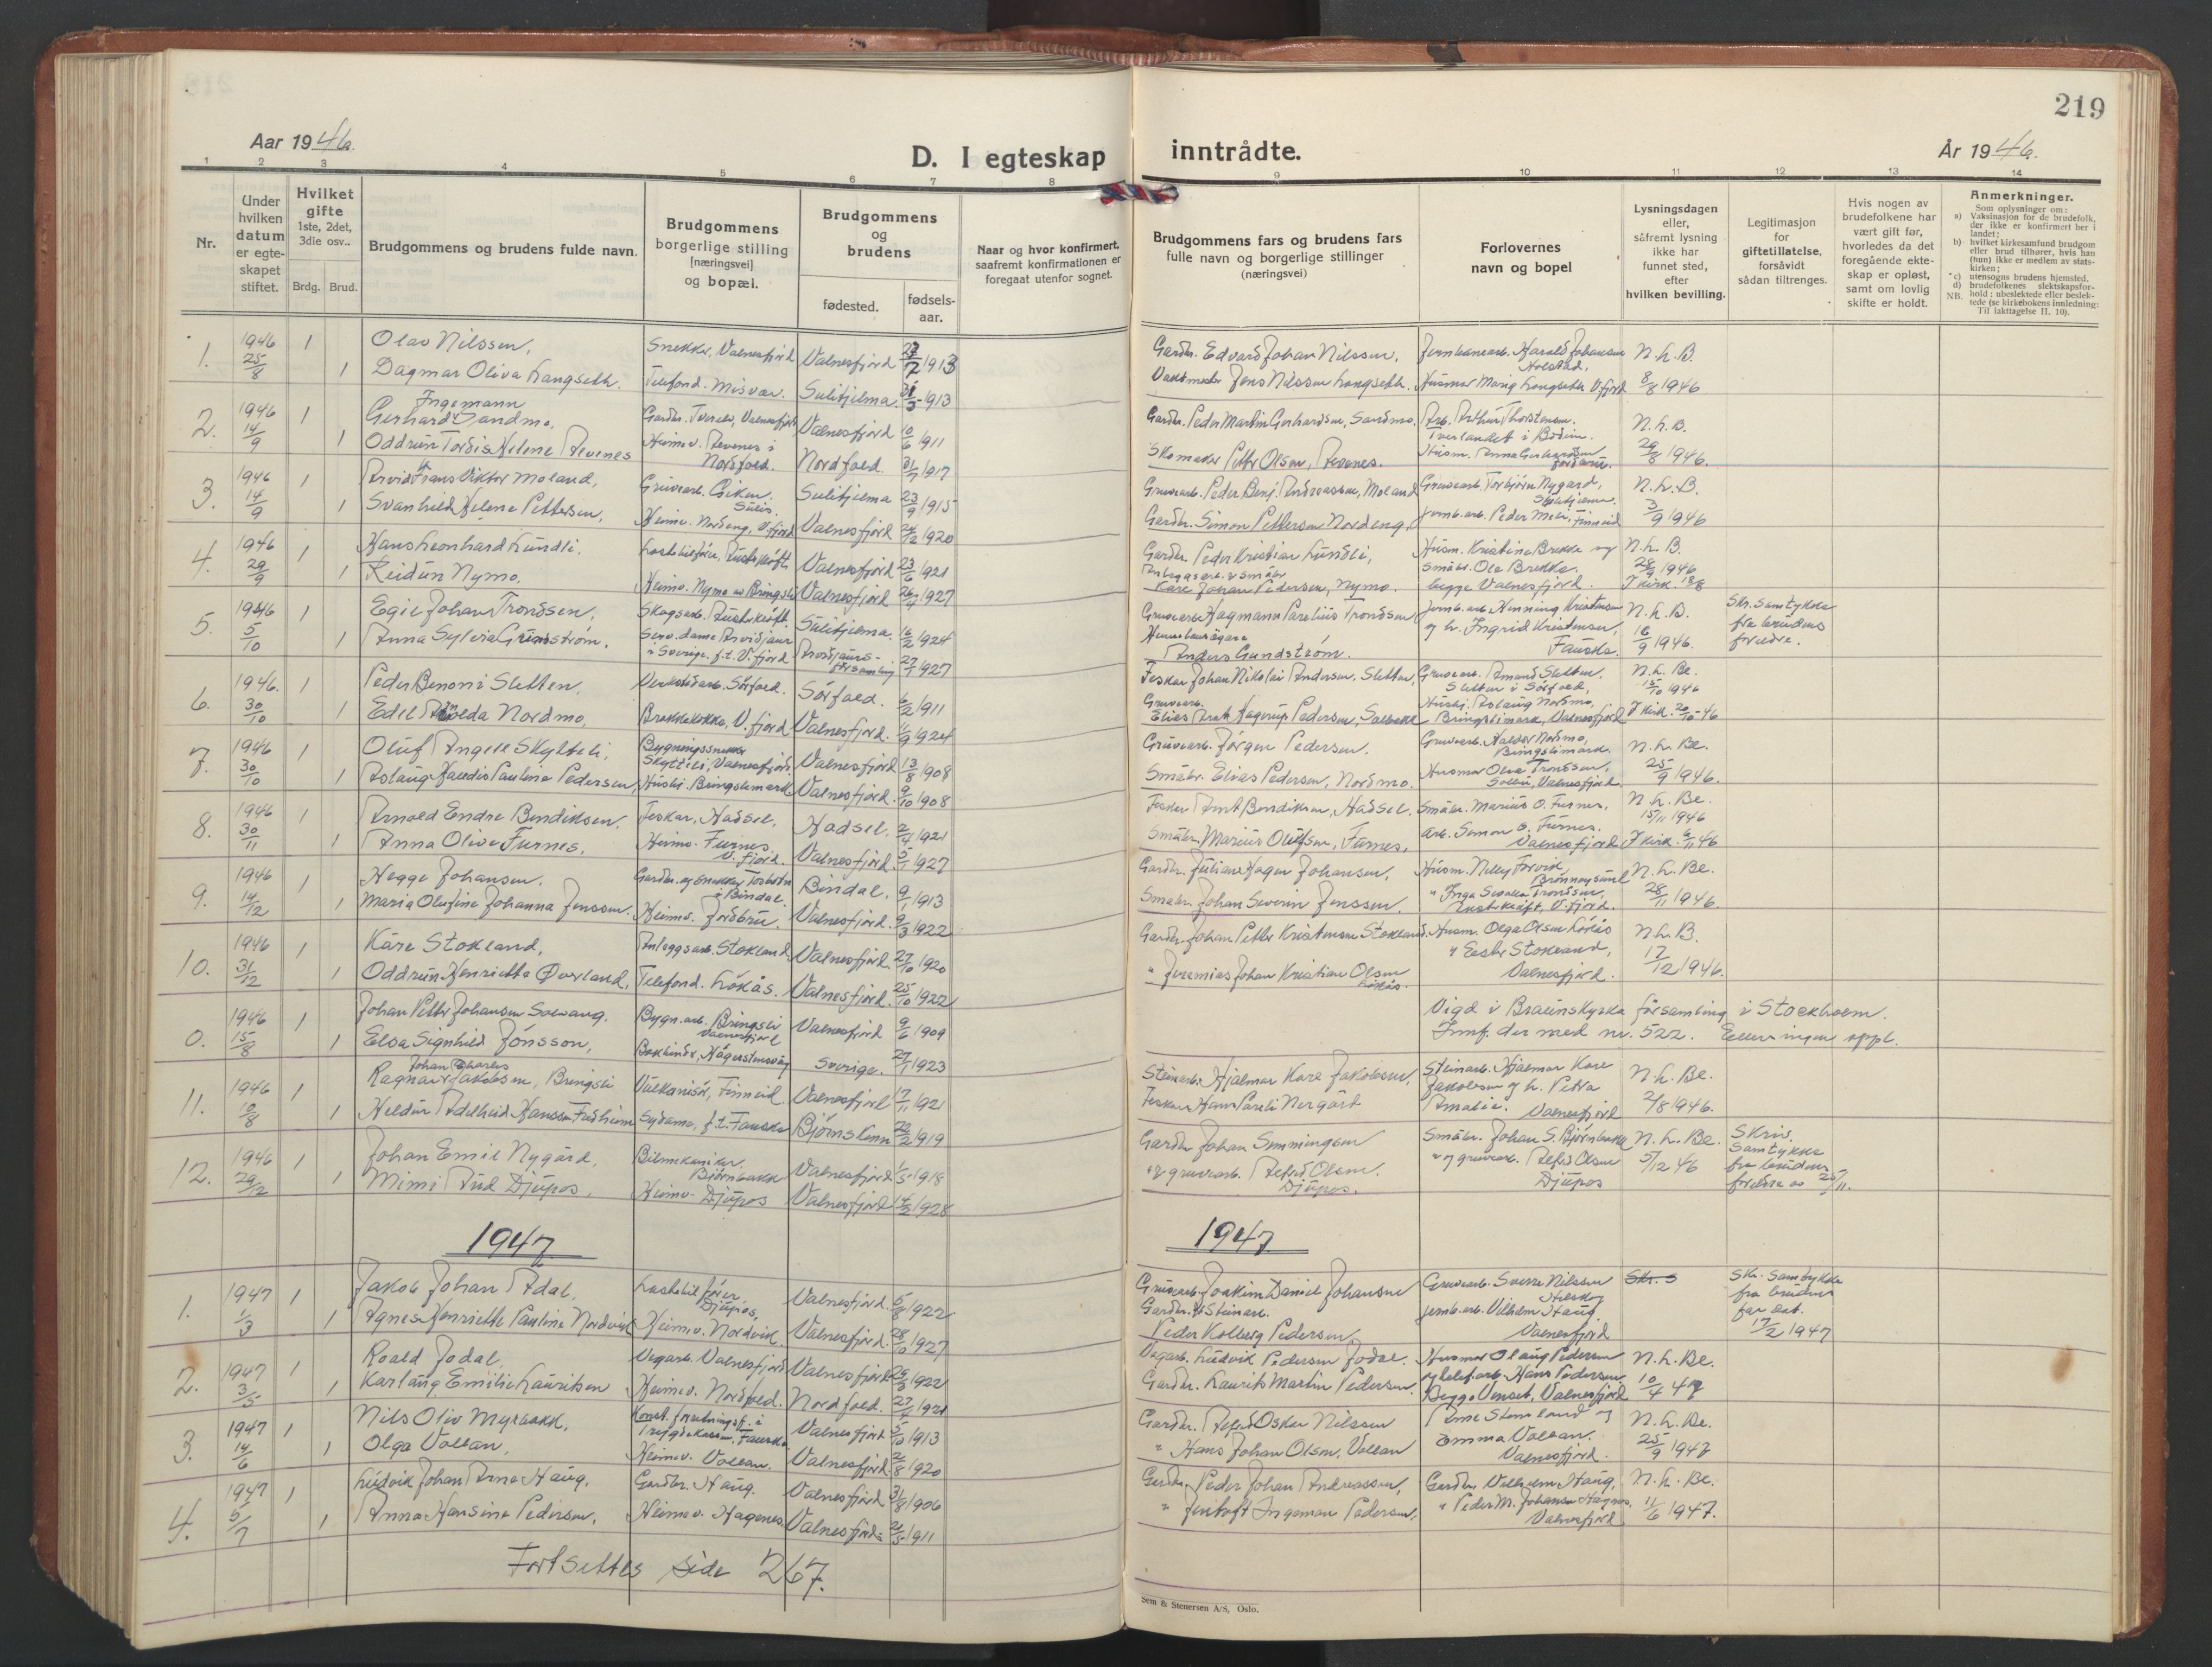 219
Aar 1946.
D. I egteskap
inntrådte.
År 1946.
1 2 3 4 5 6 7 8 9 10 11 12 13 14
Nr.
Under hvilken datum er egteskapet stiftet.
Hvilket gifte 1ste, 2det, 3die osv..
Brdg. Brud.
Brudgommens og brudens fulde navn.
Brudgommens borgerlige stilling [næringsvei] og bopæl.
Brudgommens og brudens
fødested.
fødsels-aar.
Naar og hvor konfirmert, saafremt konfirmationen er foregaat utenfor sognet.
Brudgommens fars og brudens fars fulle navn og borgerlige stillinger (næringsvei)
Forlovernes navn og bopel
Lysningsdagen eller, såfremt lysning ikke har funnet sted, efter hvilken bevilling.
Legitimasjon for giftetillatelse, forsåvidt sådan tiltrenges.
Hvis nogen av brudefolkene har vært gift før, hvorledes da det foregående ekteskap er opløst, samt om lovlig skifte er holdt.
Anmerkninger.
Som oplysninger om:
a) Vaksinasjon for de brudefolk, der ikke er konfirmert her i landet;
b) hvilket kirkesamfund brudgom eller brud tilhører, hvis han (hun) ikke er medlem av statskirken;
c) utensogns brudens hjemsted.
d) brudefolkenes slektskapsforhold: ubeslektede eller beslektede (se kirkebokens innledning: Til iakttagelse II. 10).
NB.
1. 1946 25/8 1 Olav Nilssen, Snekker, Valnesfjord Valnesfjord 1913 Gardbr. Edvard Johan Nilssen, Jernbanearb. Harald Johansen N.L.B.
1 Dagmar Oliva Langseth. Telefond. Misvær. Sulitjelma. 1913 Vaktmester Jens Nilssen Langseth. Husmor Marig Langseth V.fjord 8/8 1946
2. 1946 14/9 1 Gerhard Ingemann Sandmo, Valnesfjord 10/6 1911 Gardbr. Peder Martin Gerhardsen, Sandmo. Arb. Arthur Thorstensen. N.L.B.
Tverlandet i Bodin.
1 Oddrun Tordis Helene Aevenes Heimev. Aevenes i Nordfold. Nordfold. 31/7 1917 Skomaker Petter Olsen, Aevenes. 29/8 1946.
3. 1946 14/9 1 Arvid Frans Viktor Moland, Gruvearb. Giken. Sulis. Sulitjelma 23/9 1915 Gruvearb. Peder Benj. Andreassen, Moland Gruvearb. Torbjørn Nygard, Sulitjelma. N.L.B.
1 Svanhild Helene Pettersen, Heimev. Nordeng, V.fjord Valnesfjord 24/2 1920 Gardbr. Simon Pettersen Nordeng, Jernb.arb. Peder Meli, Finneid 3/9 1946
4. 1946 29/9 1 Hans Leonhard Lundli. Valnesfjord 23/6 1921 Gardbr. Peder Kristian Lundli, Husm. Kristine Brekke og N.L.B.
1 Reidun Nymo, Heimev. Nymo av Bringsli Valnesfjord 1927 Kåre Johan Pedersen, Nymo. Småbr. Ole Brekke. begge Valnesfjord. 1946 I kirk. 18/8
5. 1946 5/10 1 Egil Johan Trondsen, Sulitjelma. 16/2 1924 Gruvearb. Hagmann Parelius Trondsen Jernb.arb. Henning Kristensen N.L.B. Skr. samtykke fra brudens foreldre.
1 Anna Sylvia Grundström. Serv.dame Arvidjaur i Sverige. f.t. V.fjord Arvidjaurs församling 27/7 1927 Anders Gundström. og h. Ingrid Kristensen, Fauske. 18/9 1946.
6. 1946. 30/10 1 Peder Benoni Sletten, Verkstedarb. Sörfold. Sörfold. 6/2 1911 Fisker Johan Nikolai Andersen, Sletten, Gruvearb. Amand Sletten. Sletten i Sörfold, N.L.Be. 15/10 1946
1 Edel Nordmo, Brekkekokka, V.fjord Valnesfjord. 1/9 1924 Gruvearb. Elias Hagerup Pedersen, Solbakk Aslaug Nordmo, Bringslimark, Valnesfjord I kirk. 20/10-46
7. 1946 30/10 1 Oluf Angell Skytteli, Bygningssnekker Skytteli, Valnesfjord Valnesfjord 13/8 1908 Gruvearb. Jørgen Pedersen. Gruvearb. Halvor Nordmo, Bringslimark. N.L.Be.
1 Aslaug Hardis Pauline Pedersen, Hushj. Bringslimark Valnesfjord. 9/10 1908 Småbr. Elias Pedersen, Nordmo. Husmor Olea Trondsen, Valnesfjord. 25/9 1946.
8. 1946 30/11 1 Arnold Endre Bendiksen, Fisker, Hadsel. Hadsel. 2/4 1921 Fisker Arnt Bendiksen, Hadsel. Småbr. Marius O. Furnes, N.L.Be. 15/11 1946
1 Anna Olive Furnes. Heimev. Furnes V.fjord. Valnesfjord. 5/1 1927 Småbr. Marius Olufsen, Furnes. Arb. Simon O. Furnes. Valnesfjord I kirk. 6/11 46
9. 1946 14/12 1 Hegge Johansen. Gardbr. og snekker Tosbotn i Bindal. Bindal. 9/1 1913 Gardbr. Julius Hagen Johansen. Husm. Nelly Forvik, Brönnøysund N.L.Be.
1 Maria Olufine Johanna Jenssen. Heimev. Jordbru. Valnesfjord. 9/3 1922 Småbr. Johan Severin Jenssen. " Inga Trondsen, V.fjord. 28/11 1946.
10. 1946 31/12 1 Kåre Stokland, Anleggsarb. Stokland Valnesfjord. 27/10 1920 Gardbr. Johan Petter Kristensen Stokland. Husm. Olga Olsen Lökås N.L.B.
1 Oddrun Henriette Øverland, Telefond. Lökås. Valnesfjord. 25/10 1922 " Jeremias Johan Kristian Olsen Lökås. " Ester Stokland, Valnesfjord. 17/12 1946.
0. 1946 15/8 1 Johan Petter Johansen Solvang. Bygn.arb. Bringsli Valnesfjord Valnesfjord 9/6 1909 Vigd i Brännkyrka församling i Stockholm.
1 Elsa Signhild Jönsson, Hägerstensväg Sverige. 27/1 1923 Innf. der med nr. 522. Ellers ingen oppl.
11. 1946 10/8 1 Ragnar Johan Charles Jakobsen, Bringsli Vulkanisör, Finneid. Valnesfjord 17/11 1921 Steinarb. Hjalmar Kåre Jakobsen, Steinarb. Hjalmar Kåre N.L.Be.
1 Heldur Adelheid Hansen Fadheim Sydame, f.t. Fauske Björnskinn 22/2 1919 Fisker Hans Pareli Nergård Jakobsen og h. Petra Amalie. Valnesfjord 2/8 1946.
12. 1946 29/12 1 Johan Emil Nygård, Bilmekaniker. Björnbakk Valnesfjord 1/5 1918 Gardbr. Johan Simmingsen Småbr. Johan S. Björnbakk N.L.Be. Skr. samtykke fra brudens foreldre av 25/11.
1 Mimi Aud Djupos, Heimev. Djupos Valnesfjord 1928 " og gruvearb. Alfred Olsen. Djupos. " og gruvearb. Alfred Olsen Djupos 5/12 46
1947 1947
1. 1947 1/3 1 Jakob Johan Adal, Lastebilfører, Djupos, Valnesfjord. 5/8 1922 Gruvearb. Joakim Daniel Johansen Gruvearb. Sverre Nilssen Skr. s Skr. samtykke fra brudens far dat. 17/2 1947
1 Agnes Henriette Pauline Nordvik Heimev. Nordvik. Valnesfjord. 28/10 1927 Gardbr. & Steinarb. Peder Kolberg Pedersen. Jernb.arb. Vilhelm Haug Valnesfjord
2. 1947 3/5 1 Roald Jodal, Vegarb. Valnesfjord Valnesfjord 1922 Vegarb. Ludvik Pedersen Jodal. Husmor Olaug Pedersen N.L.Be.
1 Karlaug Emilie Lauritsen Heimev. Nordfold. Nordfold. 1921 Gardbr. Laurits Martin Pedersen og Hans Pedersen Begge Venset, Valnesfjord 10/4 47
3. 1947 14/6 1 Nils Oliv Myrbakk, Trygdekassen, Fauske Valnesfjord 5/10 1913 Gardbr. Alfred Oskar Nilssen Arne Stemland og N.L.Be.
1 Olga Vollan, Heimev. Vollan. Valnesfjord. 2/8 1920 " Hans Johan Olsen, Vollan Emma Vollan. Valnesfjord. 25/9 1947
4. 1947 5/7 1 Ludvik Johan Arne Haug. Gardbr. Haug. Valnesfjord 31/8 1906 Gardbr. Peder Johan Andreassen, Gardbr. Vilhelm Haug, N.L.Be.
1 Anna Hansine Pedersen. Heimev. Hagenes. Valnesfjord 1911 " Jentoft Ingeman Pedersen, " Peder M. Johansen Hagnes, Valnesfjord 11/6 1947.
Fortsettes side 267.
Sem & Stenersen A/S, Oslo.